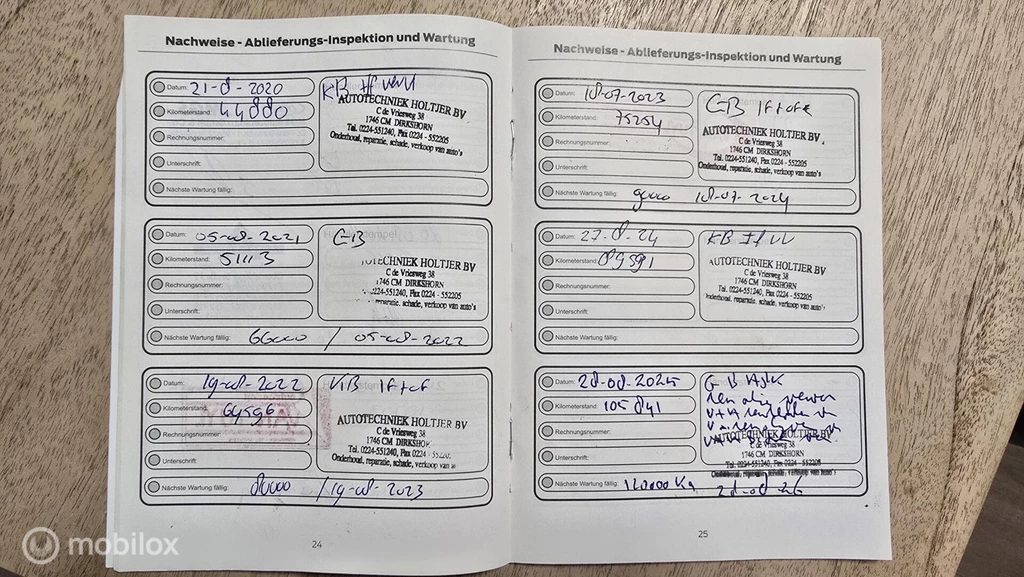 Nachweise - Ablieferungs-Inspektion und Wartung
Datum: 21-08-2020
Kilometerstand: 44880
Rechnungsnummer:
Unterschrift:
Nächste Wartung fällig:
KB
AUTOTECHNIEK HOLTJER BV
C de Vrierweg 38
1746 CM DIRKSHORN
Tel. 0224-551240, Fax 0224 - 552205
Onderhoud, reparatie, schade, verkoop van auto's
Datum: 05-08-2021
Kilometerstand: 51113
Rechnungsnummer:
Unterschrift:
Nächste Wartung fällig: 66000 / 05-08-2022
GB
AUTOTECHNIEK HOLTJER BV
C de Vrierweg 38
1746 CM DIRKSHORN
Tel. 0224-551240, Fax 0224 - 552205
schade, verkoop van auto's
Datum: 19-08-2022
Kilometerstand: 64596
Rechnungsnummer:
Unterschrift:
Nächste Wartung fällig: 80000 / 19-08-2023
KB If+of
AUTOTECHNIEK HOLTJER BV
C de Vrierweg 38
1746 CM DIRKSHOR
Tel. 0224-551240, Fax 0224
Onderhoud, reparatie, schade, verkoop van
24
Nachweise - Ablieferungs-Inspektion und Wartung
Datum: 18-07-2023
Kilometerstand: 75254
Rechnungsnummer:
Unterschrift:
Nächste Wartung fällig: 90000 18-07-2024
GB If+of
AUTOTECHNIEK HOLTJER BV
C de Vrierweg 38
1746 CM DIRKSHORN
Tel. 0224-551240, Fax 0224 - 552205
Onderhoud, reparatie, schade, verkoop van auto's
Datum: 27-8-24
Kilometerstand: 89591
Rechnungsnummer:
Unterschrift:
Nächste Wartung fällig:
KB If
AUTOTECHNIEK HOLTJER BV
C de Vrierweg 38
1746 CM DIRKSHORN
Tel. 0224-551240, Fax 0224 - 552205
Onderhoud, reparatie, schade, verkoop van auto's
Datum: 28-08-2025
Kilometerstand: 105841
Rechnungsnummer:
Unterschrift:
Nächste Wartung fällig: 120000 Km 28-08-26
GB
AUTOTECHNIEK HOLTJER BV
C de Vrierweg 38
1746 CM DIRKSHORN
Tel. 0224-551240, Fax 0224 - 552205
Onderhoud, reparatie, schade, verkoop van auto's
25
mobilox